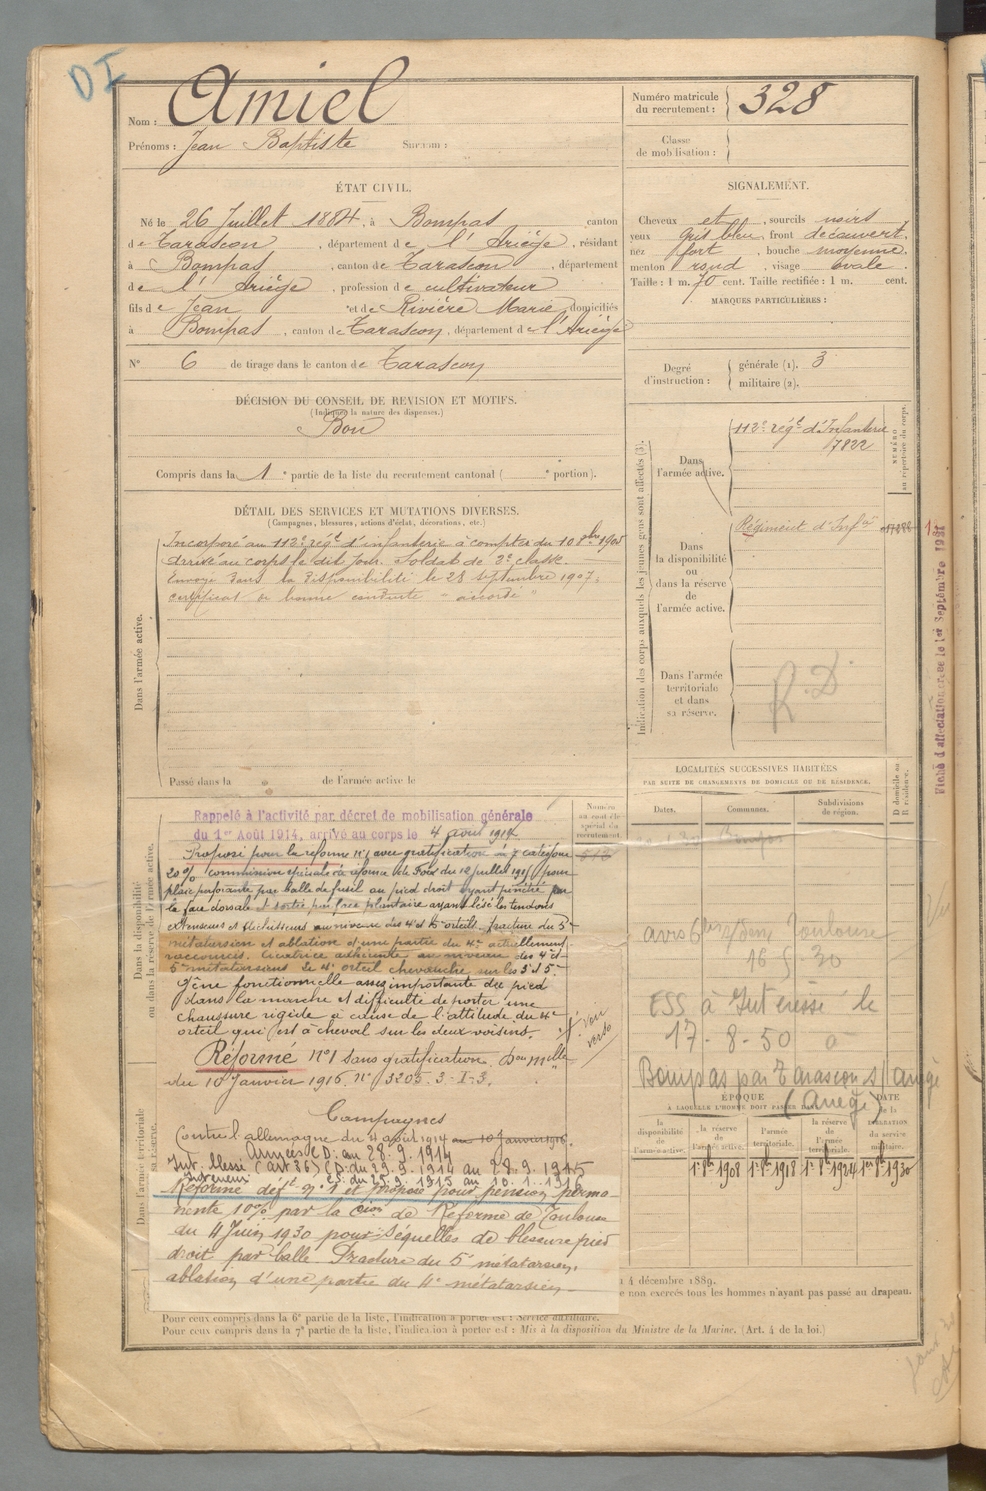 DI
Nom : Amiel
Prénoms : Jean Baptiste Surnom :
Numéro matricule
du recrutement : 328
Classe
de mobilisation :
ÉTAT CIVIL.
Né le 26 Juillet 1884, à Bompas canton
de Tarascon, département de l'Ariège, résidant
à Bompas, canton de Tarascon, département
de l'Ariège, profession de cultivateur
fils de Jean et de Rivière Marie domiciliés
à Bompas, canton de Tarascon, département de l'Ariège
N° 6 de tirage dans le canton de Tarascon
SIGNALEMENT.
Cheveux et, sourcils noirs
yeux gris bleu, front découvert,
nez fort, bouche moyenne
menton rond, visage ovale.
Taille : 1 m. 70 cent. Taille rectifiée : 1 m. cent.
MARQUES PARTICULIÈRES :
Degré
d'instruction :
générale (1). 3
militaire (2).
DÉCISION DU CONSEIL DE REVISION ET MOTIFS.
(Indiquer la nature des dispenses.)
Bon
Compris dans la 1e partie de la liste du recrutement cantonal ( e portion).
DÉTAIL DES SERVICES ET MUTATIONS DIVERSES.
(Campagnes, blessures, actions d'éclat, décorations, etc.)
Dans l'armée active.
Incorporé au 112e régt d'infanterie à compter du 10 8bre 1905
Arrivé au corps le dit jour. Soldat de 2e classe.
Envoyé dans la disponibilité le 28 septembre 1907,
certificat de bonne conduite "accordé"
Passé dans la de l'armée active le
Indication des corps auxquels les jeunes gens sont affectés (3).
Dans
l'armée active.
112e régt d'Infanterie
7822
NUMÉRO
au répertoire du corps.
Dans
la disponibilité
ou
dans la réserve
de
l'armée active.
Régiment d'Infie
Dans l'armée
territoriale
et dans
sa réserve.
R.D
Fiche d'affectation créée le 1er Septembre 1931
LOCALITÉS SUCCESSIVES HABITÉES
PAR SUITE DE CHANGEMENTS DE DOMICILE OU DE RÉSIDENCE.
Dates. Communes. Subdivisions
de région.
D domicile ou
R résidence.
Bompas
Toulouse
16-5-30
ESS à Intéressé le
17-8-50
Bompas par Tarascon s/ariège
(Ariège)
Dans la disponibilité
ou dans la réserve de l'armée active.
Rappelé à l'activité par décret de mobilisation générale
du 1er Août 1914, arrivé au corps le 4 août 1914
Proposé pour la réforme n°1 avec gratification de 7e catégorie
20% commission spéciale de réforme de Foix du 12 juillet 1915 pour
plaie perforante par balle de fusil au pied droit ayant pénétré par
la face dorsale et sortie par face plantaire ayant lésé les tendons
extenseurs et fléchisseurs au niveau des 4e et 5e orteils. fracture du 5e
métatarsien et ablation d'une partie du 4e actuellement
raccourcis. Cicatrice adhérente au niveau des 4e et
5e métatarsiens le 4e orteil chevauche sur les 3 et 5e
Gêne fonctionnelle assez importante du pied
dans la marche et difficulté de porter une
chaussure rigide à cause de l'attitude du 4e
orteil qui est à cheval sur les deux voisins.
Voir
verso
Réformé n°1 sans gratification.
du 10 Janvier 1916. n° 3205.3-I-3.
Campagnes
Contre l'allemagne du 4 août 1914 au 10 Janvier 1916.
Armées CD. au 28.9.1914
Int. blessé (art 36) CD. du 29.9.1914 au 28.9.1915
Intérieur CS. du 29.9.1915 au 10.1.1916
Réformé déft n°1 et proposé pour pension perma-
nente 10% par la Cion de Réforme de Toulouse
du 4 Juin 1930 pour: Séquelles de blessure pied
droit par balle. Fracture du 5e métatarsien.
ablation d'une partie du 4e métatarsien.
Dans l'armée territoriale
et dans sa réserve.
Numéro
au contrôle
spécial du
recrutement.
ÉPOQUE
À LAQUELLE L'HOMME DOIT PASSER DANS
DATE
de la
LIBÉRATION
du service
militaire.
la
disponibilité
de
l'armée active.
la réserve
de
l'armée active.
l'armée
territoriale.
la
réserve
de
l'armée
territoriale.
1er 8bre 1908 1er 8bre 1918 1er 8bre 1924 1er 8bre 1930
4 décembre 1889.
non exercés tous les hommes n'ayant pas passé au drapeau.
Pour ceux compris dans la 6e partie de la liste, l'indication à porter est : Service auxiliaire.
Pour ceux compris dans la 7e partie de la liste, l'indication à porter est : Mis à la disposition du Ministre de la Marine. (Art. 4 de la loi.)